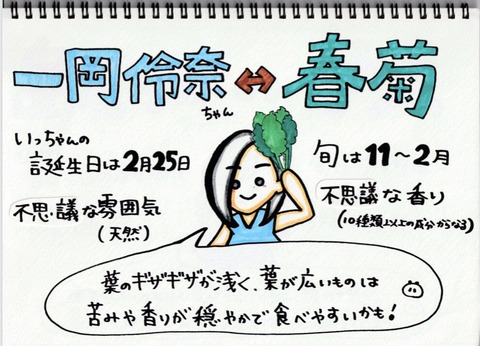 一岡伶奈↔春菊
ちゃん
いっちゃんの
誕生日は2月25日
不思議な雰囲気
(天然)
旬は11〜2月
不思議な香り
(10種類以上の成分からなる)
葉のギザギザが浅く、葉が広いものは
苦みや香りが穏やかで食べやすいかも!